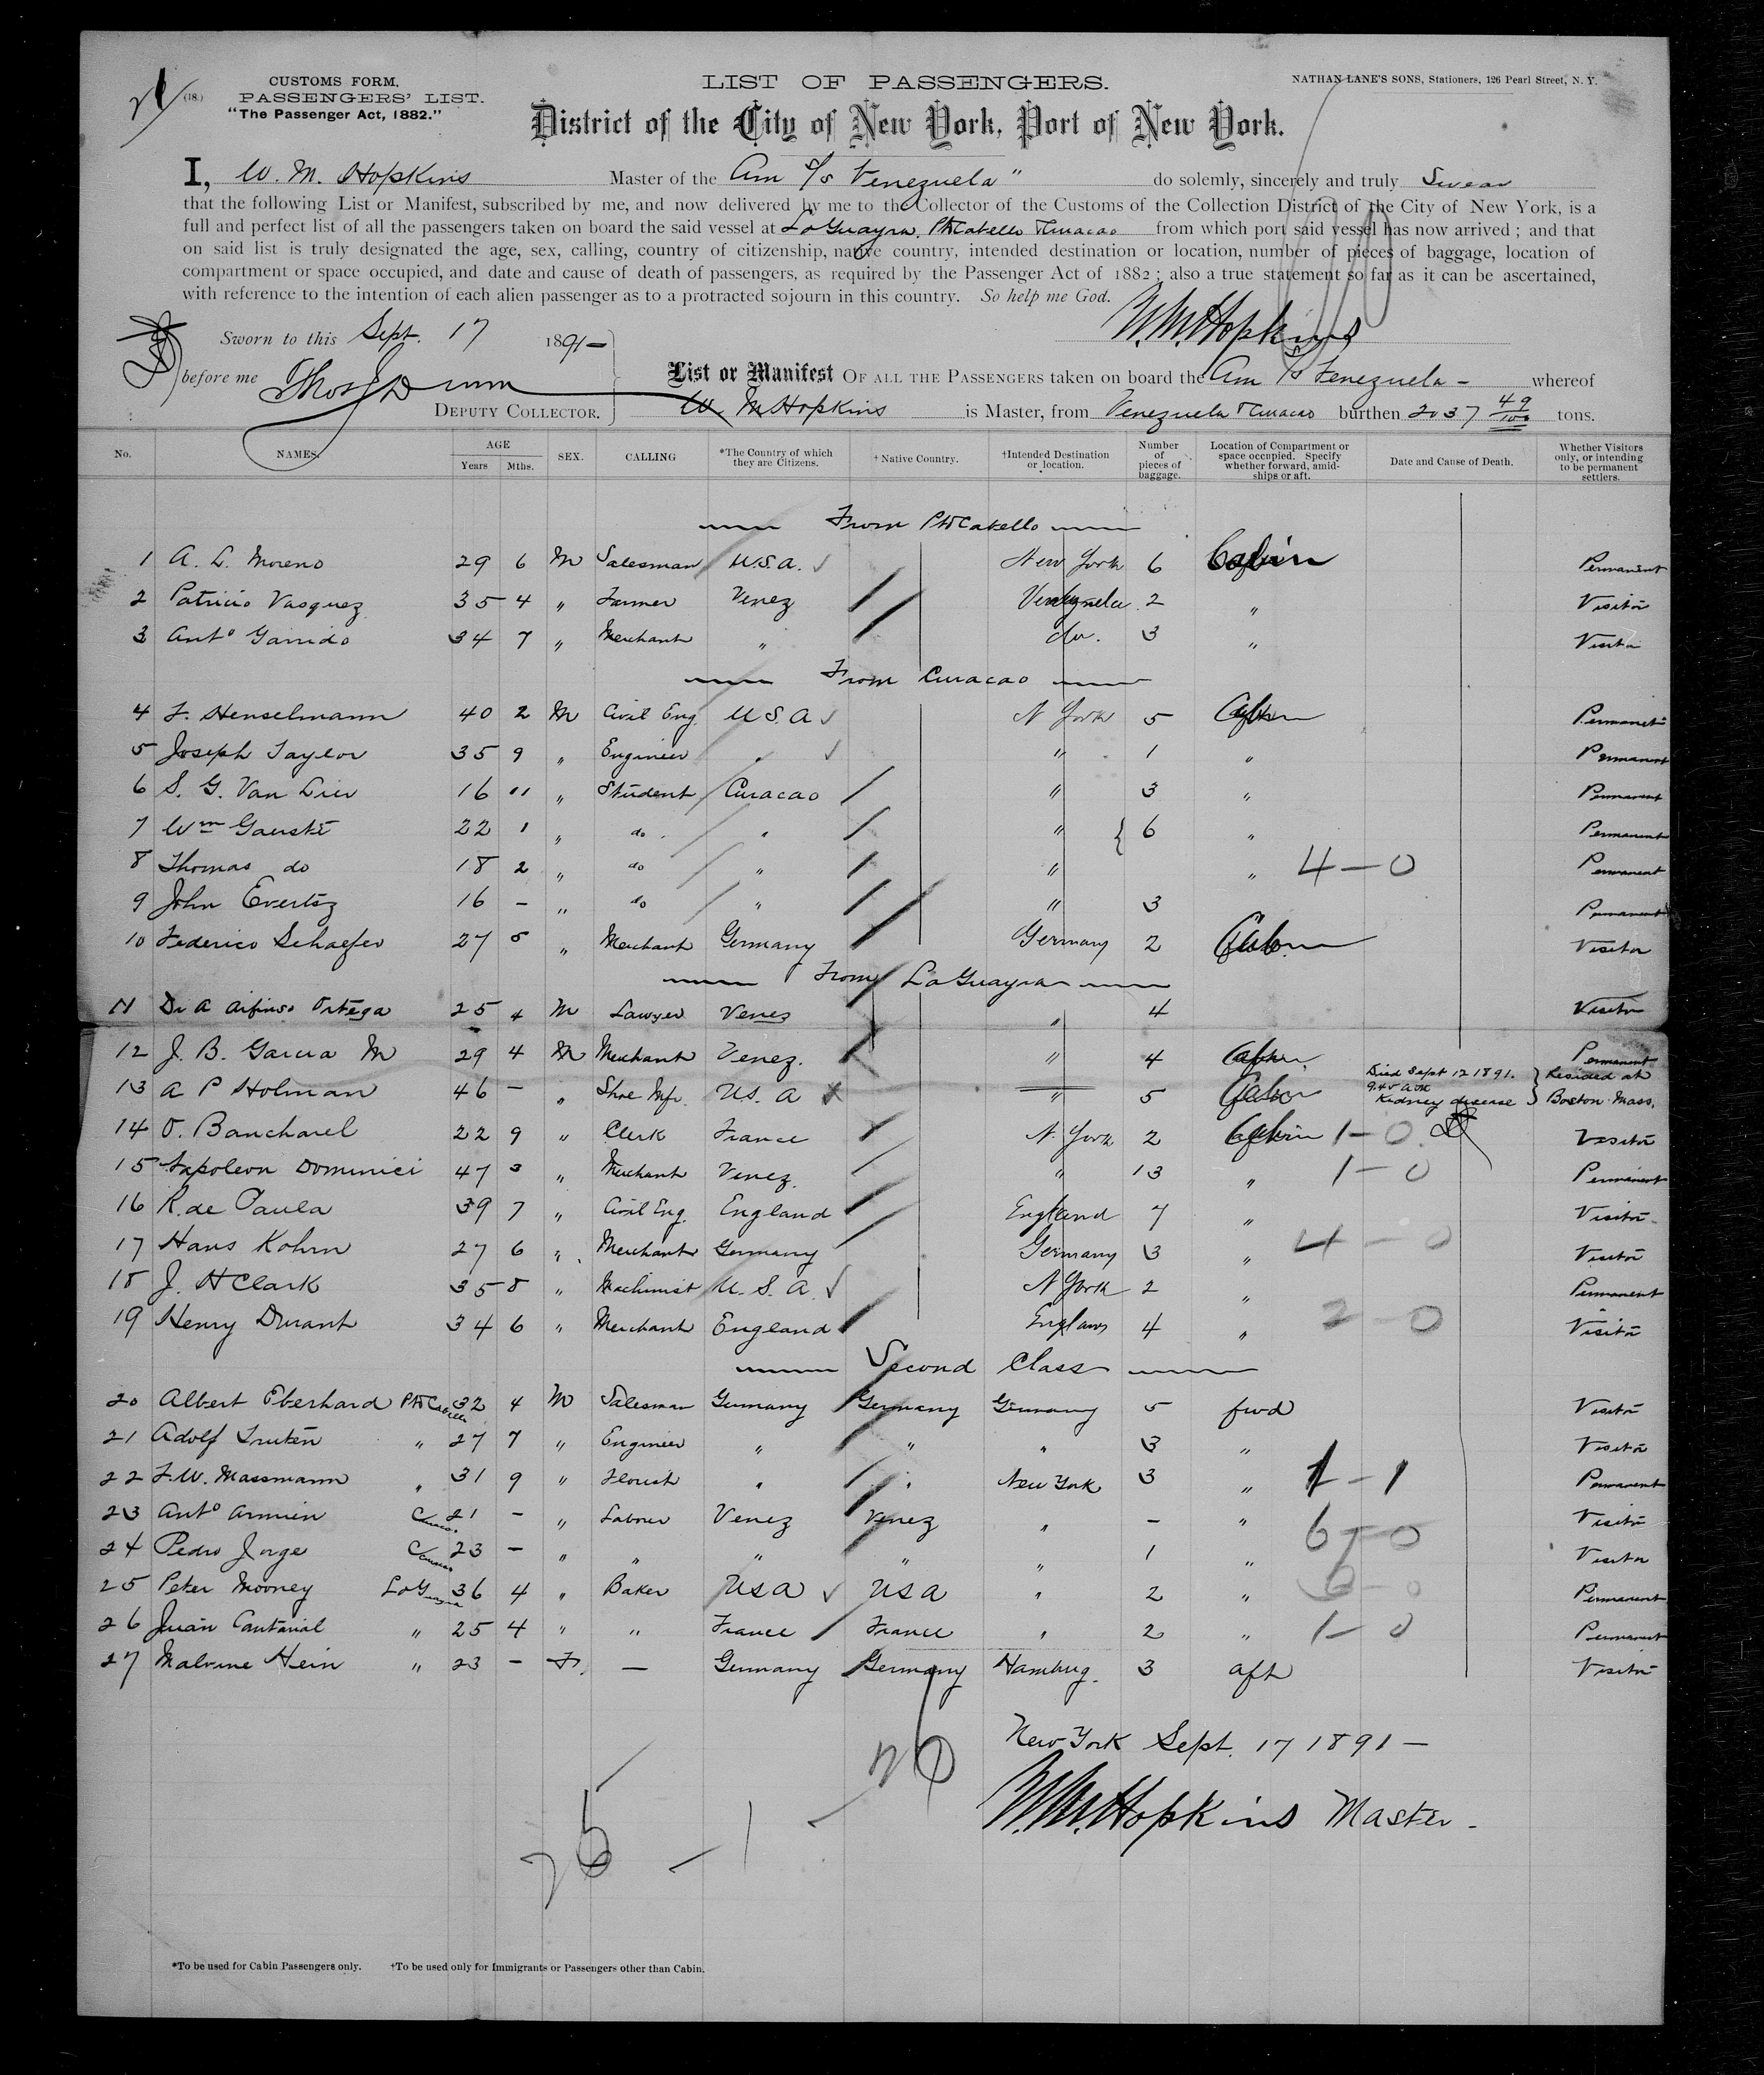 21 (18.)
CUSTOMS FORM.
PASSENGERS' LIST.
"The Passenger Act, 1882."
LIST OF PASSENGERS.
NATHAN LANE'S SONS, Stationers, 126 Pearl Street, N. Y.
District of the City of New York, Port of New York.
I, W. M. Hopkins Master of the Am S/S Venezuela" do solemnly, sincerely and truly Swear
that the following List or Manifest, subscribed by me, and now delivered by me to the Collector of the Customs of the Collection District of the City of New York, is a
full and perfect list of all the passengers taken on board the said vessel at LaGuayra, PtoCabello & Curacao from which port said vessel has now arrived; and that
on said list is truly designated the age, sex, calling, country of citizenship, native country, intended destination or location, number of pieces of baggage, location of
compartment or space occupied, and date and cause of death of passengers, as required by the Passenger Act of 1882; also a true statement so far as it can be ascertained,
with reference to the intention of each alien passenger as to a protracted sojourn in this country. So help me God.
W.M.Hopkins
Sworn to this Sept. 17 1891-
before me Thos J Dunn
DEPUTY COLLECTOR.
List or Manifest OF ALL THE PASSENGERS taken on board the Am S/S Venezuela - whereof
W. M Hopkins is Master, from Venezuela & Curacao burthen 2037 49/100 tons.
No. NAMES. AGE Years Mths. SEX. CALLING *The Country of which they are Citizens. †Native Country. †Intended Destination or location. Number of pieces of baggage. Location of Compartment or space occupied. Specify whether forward, amidships or aft. Date and Cause of Death. Whether Visitors only, or intending to be permanent settlers.
From PtoCabello
1 A. L. Moreno 29 6 M Salesman U.S.A. New York 6 Cabin Permanent
2 Patricio Vasquez 35 4 " Farmer Venez Venezuela 2 " Visitor
3 Anto Garrido 34 7 " Merchant " do. 3 " Visitor
From Curacao
4 F. Henselmann 40 2 M Civil Eng. U S. A N York 5 Cabin Permanent
5 Joseph Taylor 35 9 " Engineer " " 1 " Permanent
6 S. G. Van Lier 16 11 " Student Curacao " 3 " Permanent
7 Wm 22 1 " do " " 6 " Permanent
8 Thomas do 18 2 " do " " " 4-0 Permanent
9 John Evertsz 16 - " do " " 3 Permanent
10 Federico Schaefer 27 5 " Merchant Germany Germany 2 Cabin Visitor
From LaGuayra
11 Dr A Alfonso Ortega 25 4 M Lawyer Venez " 4 Visitor
12 J. B. Garcia M 29 4 M Merchant Venez. " 4 Cabin Permanent
13 A P Holman 46 - " Shoe Mfr. U.S. A " 5 Cabin Died Sept 12 1891. 9.45 AM Kidney disease } Resided at Boston Mass.
14 O. Bancharel 22 9 " Clerk France N. York 2 Cabin 1-0 Visitor
15 Napoleon Dominici 47 3 " Merchant Venez. " 13 " 1-0 Permanent
16 R. de Paula 39 7 " Civil Eng. England England 7 " Visitor
17 Hans Kohrn 27 6 " Merchant Germany Germany 3 " 4-0 Visitor
18 J. H Clark 35 8 " Machinist U. S. A. N York 2 " Permanent
19 Henry Durant 34 6 " Merchant England England 4 " 2-0 Visitor
Second Class
20 Albert Eberhard PtoCabello 32 4 M Salesman Germany Germany Germany 5 fwd Visitor
21 Adolf Truten " 27 7 " Engineer " " " 3 " Visitor
22 F. W. Massmann " 31 9 " Florist " " New York 3 " 1-1 Permanent
23 Anto Armien Curacao 21 - " Labourer Venez Venez " - " 6-0 Visitor
24 Pedro Jorge Curacao 23 - " " " " " 1 " Visitor
25 Peter Mooney LaGuayra 36 4 " Baker USA USA " 2 " 6-0 Permanent
26 Juan Cantarial " 25 4 " " France France " 2 " 1-0 Permanent
27 Malvine Hein " 23 - F. - Germany Germany Hamburg. 3 aft Visitor
New York Sept. 17 1891-
26
W.M.Hopkins Master-
25 - 1 -
*To be used for Cabin Passengers only. †To be used only for Immigrants or Passengers other than Cabin.